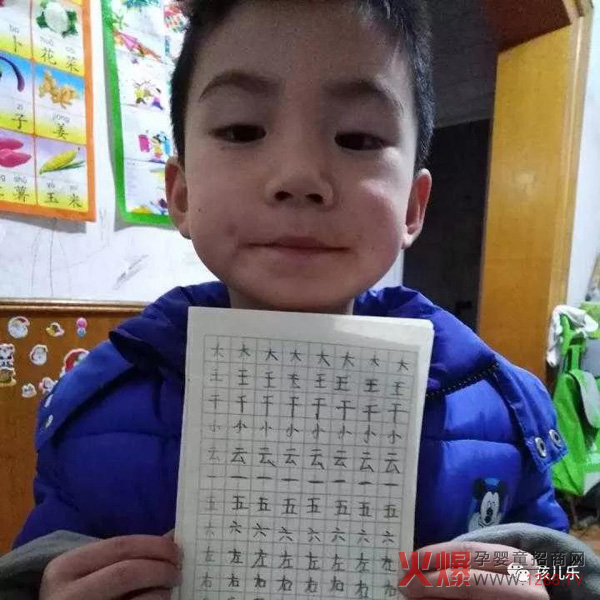 花菜
子
姜
薯
玉米
大大大大大大大大
王王王王王王王王
干干干干干干干干
小小小小小小小小
云云云云云云云云
一一一一一一一一
五五五五五五五五
六六六六六六六六
左左左左左左左左
右右右右
火爆孕婴童招商网
孩儿乐